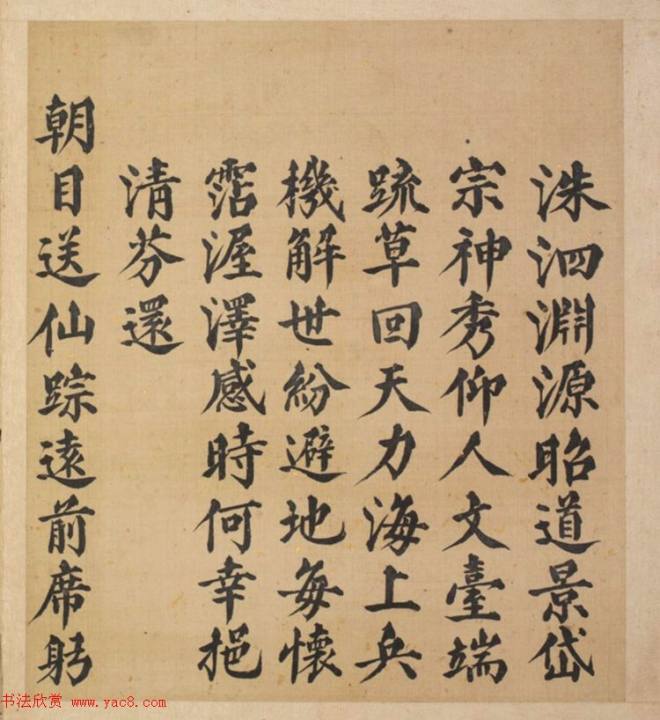 洙泗淵源昭道景岱
宗神秀仰人文臺端
疏草回天力海上兵
機解世紛避地每懷
霑渥澤感時何幸挹
清芬還
朝目送仙踪遠前席躬
书法欣赏 www.yac8.com